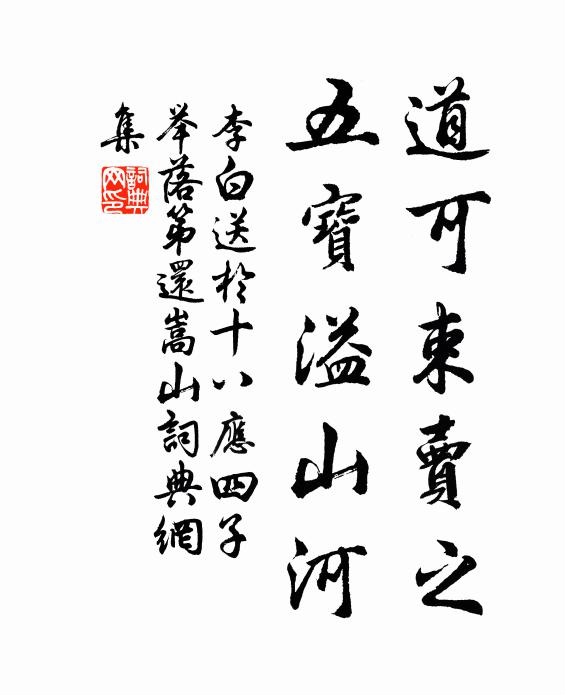 道可束賣之
五寶溢山河
李白送於十八應四子
举落第還嵩山詞典網
集
詞典
网印